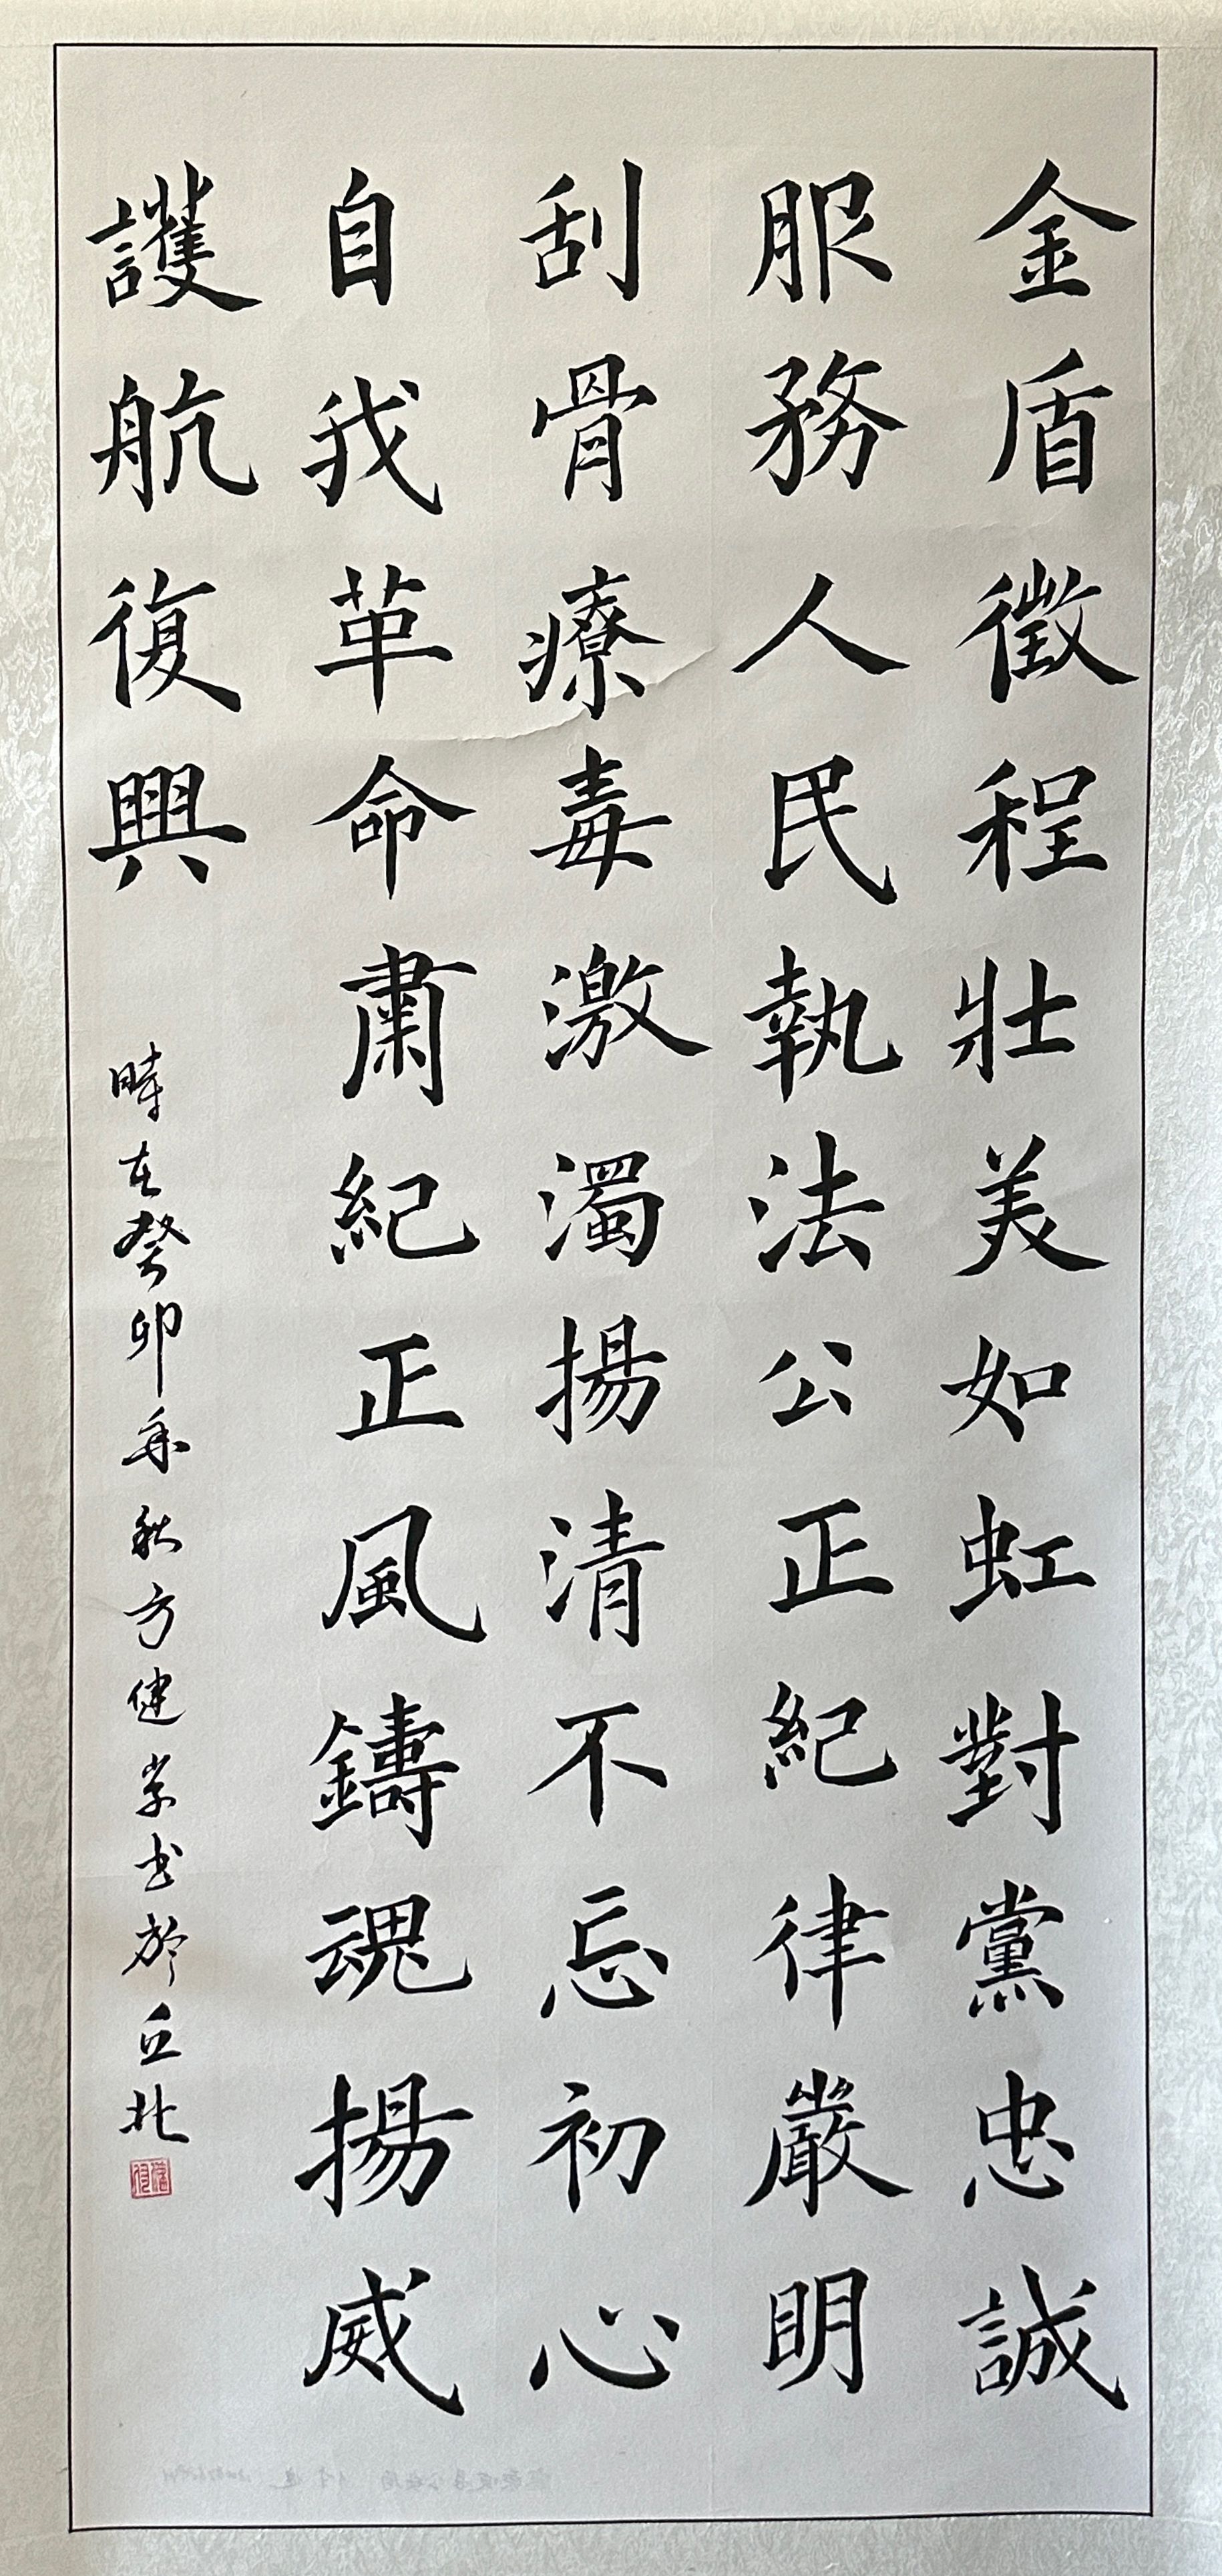 金盾徵程壯美如虹對黨忠誠
服務人民執法公正紀律嚴明
刮骨療毒激濁揚清不忘初心
自我革命肅紀正風鑄魂揚威
護航復興
時在癸卯年秋方健常书於丘北